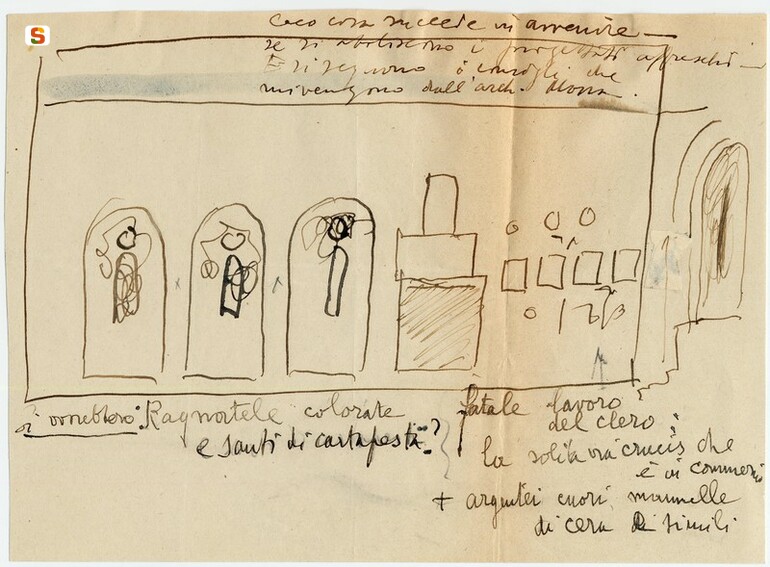 S
Ecco cosa succede in avvenire —
se si aboliscono i progettati affreschi —
E si seguono i consigli che
mi vengono dall'arch.
si avrebbero: Ragnatele colorate
e santi di cartapesta?
fatale lavoro
del clero:
la solita via crucis che
è in commercio
+ argentei cuori, mammelle
di cera e simili